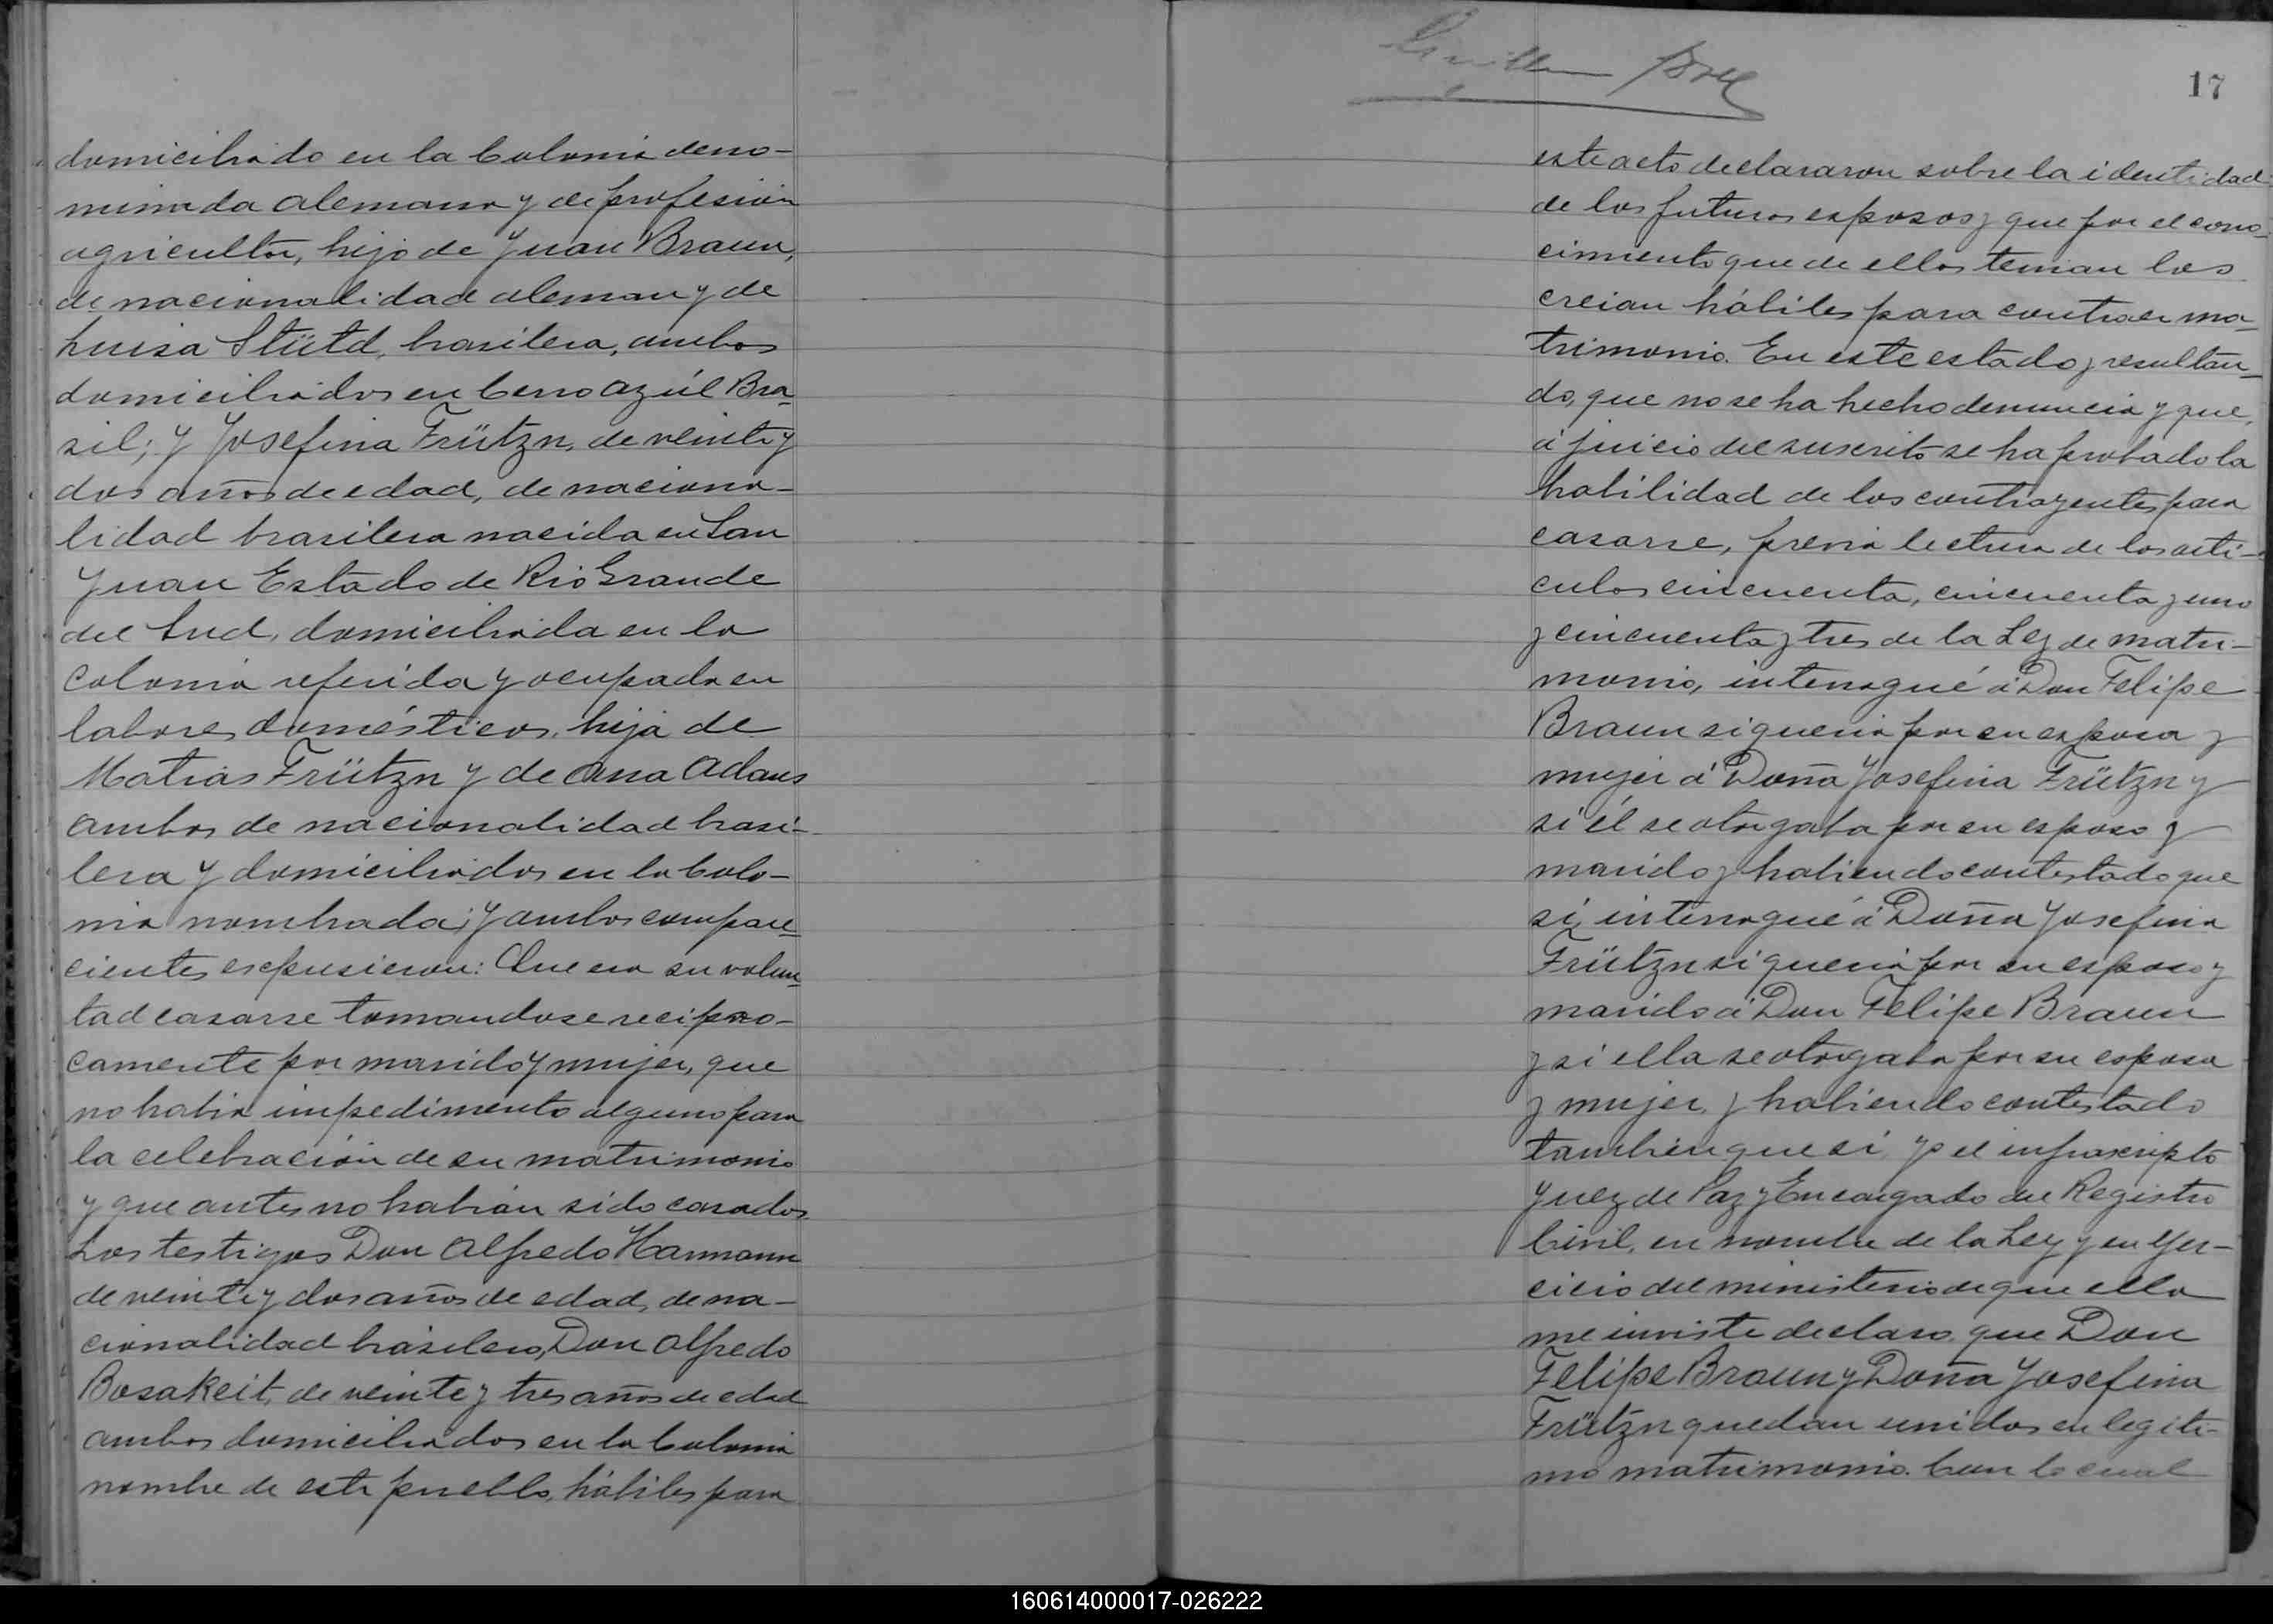 domiciliado en la Colonia deno-
minada alemana y de profesión
agricultor, hijo de Juan Braun,
de nacionalidad aleman y de
Luisa Stütd, brasilera, ambos
domiciliados en Cerro Azúl Bra-
sil; y Josefina Frützn, de veinte y
dos años de edad, de naciona-
lidad brasilera nacida en San
Juan Estado de Rio Grande
del Sud, domiciliada en la
Colonia referida y ocupada en
labores domésticos, hija de
Matias Frützn y de Ana Adams
ambos de nacionalidad brasi-
lera y domiciliados en la Colo-
nia nombrada; y ambos compare-
cientes expusieron: Que era su volun-
tad casarse tomandose recipro-
camente por marido y mujer, que
no habia impedimento alguno para
la celebración de su matrimonio
y que antes no habián sido casados.
Los testigos Don Alfredo Harmann
de veinte y dos años de edad, de na-
cionalidad brásilero, Don Alfredo
Bosakeit, de veinte y tres años de edad
ambos domiciliados en la Colonia
nombre de este pueblo, hábiles para
17
este acto declararon sobre la identidad
de los futuros esposos y que por el cono-
cimiento que de ellos tenian los
creian hábiles para contraer ma-
trimonio. En este estado y resultan-
do, que no se ha hecho denuncia y que,
á juicio del suscrito se ha probado la
habilidad de los contrayentes para
casarse, previa lectura de los arti-
culos cincuenta, cincuenta y uno
y cincuenta y tres de la Ley de matri-
monio, interrogué á Don Felipe
Braun si queria por su esposa y
mujer á Doña Josefina Frützn y
si él se otorgaba por su esposo y
marido y habiendo contestado que
si, interrogué á Doña Josefina
Frützn si queria por su esposo y
marido á Don Felipe Braun
y si ella se otorgaba por su esposa
y mujer, y habiendo contestado
tambien que si, yo el infrascripto
Juez de Paz y Encargado del Registro
Civil, en nombre de la Ley y en ejer-
cicio del ministerio de que ella
me inviste declaro que Don
Felipe Braun y Doña Josefina
Früztn quedan unidos en legiti-
mo matrimonio. Con lo cual
160614000017-026222